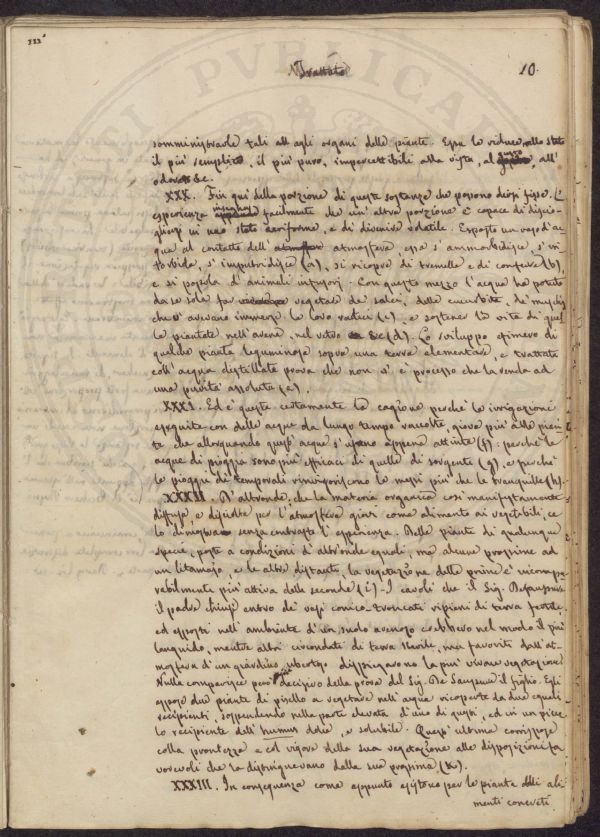 Trattato
10.
somministrarle tali all agli organi delle piante. Essa le riduce allo stato
il più semplice, il più puro, impercettibili alla vista, al gusto, all'
odorato &c.
XXX. Fin qui della porzione di queste sostanze che possono dirsi fisse. L'
esperienza insegna facilmente che un'altra porzione è capace di discio-
gliersi in uno stato aeriforme, e di divenire volatile. Esposto un vaso d'ac
qua al contatto dell' atmosfera, essa s'ammorbidisce, s'in
torbida, s'imputridisce (a), si ricopre di tremelle e di conferve (b),
e si popola d'animali infusorj. Con questo mezzo l'acqua ha potuto
da se sola far vegetare de' salci, delle cucurbite, de' muschi
che v'avevano immerse le loro radici (c), e sostener la vita di quel
le piantate nell'avena, nel vetro &c (d). Lo sviluppo efimero di
qualche pianta leguminosa sopra una terra elementare, e trattata
coll' acqua distillata prova che non v'è processo che la renda ad
una purità assoluta (e).
XXXI. Ed è questa certamente la cagione perchè le irrigazioni
eseguite con delle acque da lungo tempo raccolte, giova più alle pian
te che allorquando quest' acque s'usano appena attinte (f): perchè le
acque di pioggia sono più efficaci di quelle di sorgente (g), e perchè
le piogge di temporali rinvigoriscono le messi più che le tranquille (h).
XXXII. D'altronde, che la materia organica così manifestamente
diffusa, e disciolta per l'atmosfera giovi come alimento ai vegetabili, ce
lo dimostra senza contrasto l'esperienza. Delle piante di qualunque
specie, poste a condizioni d'altronde eguali, ma alcune prossime ad
un litamajo, e le altre distanti, la vegetazione delle prime è incompa
rabilmente più attiva delle seconde (i). I cavoli che il Sig. Desaussure
il padre chiuse entro de' vasi conico-troncati ripieni di terra fertile,
ed esposti nell'ambiente d'un suolo arenoso crebbero nel modo il più
languido, mentre altri circondati di terra sterile, ma favoriti dall'at-
mosfera d'un giardino ubertoso dispiegarono la più vivace vegetazione
Nulla comparisce però più decisivo della prova del Sig. De Saussure il figlio. Egli
espose due piante di pisello a vegetare nell'acqua ricoperte da due eguali
recipienti, sospendendo nella parte elevata d'uno di questi, ed in un picco
lo recipiente dell' humus dolce, e solubile. Quest' ultima corrispose
colla prontezza e col vigore della sua vegetazione alle disposizioni fa
vorevoli che la distinguevano dalla sua prossima (k).
XXXIII. In conseguenza come appunto esistono per le piante degli ali
menti concreti